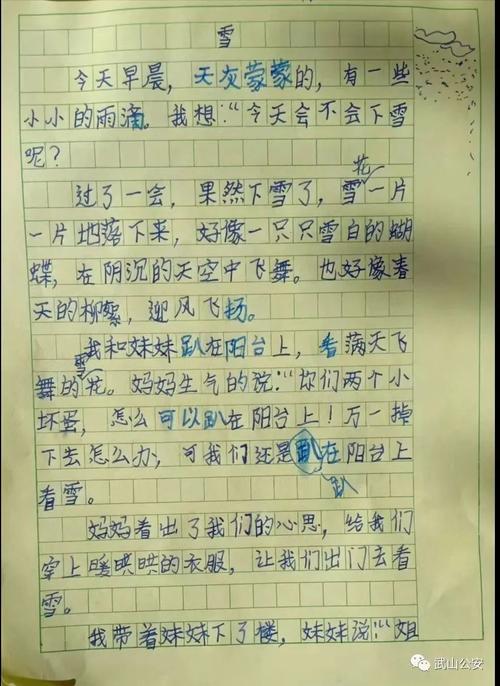 雪
今天早晨，天灰蒙蒙的，有一些
小小的雨滴。我想：“今天会不会下雪
呢？
过了一会，果然下雪了，雪花一片
一片地落下来，好像一只只雪白的蝴
蝶，在阴沉的天空中飞舞。也好像春
天的柳絮，迎风飞扬。
我和妹妹趴在阳台上，看满天飞
舞的雪花。妈妈生气的说：“你们两个小
坏蛋，怎么可以趴在阳台上！万一掉
下去怎么办，可我们还是趴在阳台上
趴
看雪。
妈妈看出了我们的心思，给我们
穿上暖哄哄的衣服，让我们出门去看
雪。
我带着妹妹下了楼，妹妹说：“姐
武山公安